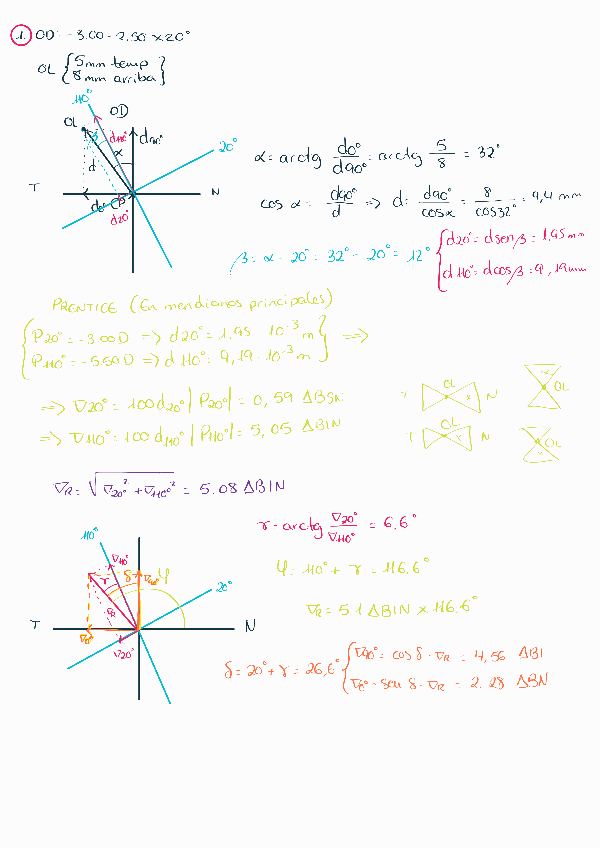 1. OD: -3.00 - 2.50 x 20°
OL { 5mm temp
8mm arriba }
110°
OD
OL
d110°
d90°
20°
α
β
d
T
N
d0°
d20°
α = arctg d0°/d90° = arctg 5/8 = 32°
cos α = d90°/d => d = d90°/cosα = 8/cos32° = 9,4 mm
β = α - 20° = 32° - 20° = 12° { d20° = d sen β = 1,95 mm
d110° = d cos β = 9,19 mm
PRENTICE (En meridianos principales)
{ P20° = -3.00 D => d20° = 1,95 · 10⁻³ m } =>
P110° = -5.50 D => d110° = 9,19 · 10⁻³ m
=> ∇20° = 100 d20° |P20°| = 0,59 ΔBSN
=> ∇110° = 100 d110° |P110°| = 5,05 ΔBIN
OL
x
N
OL
T
OL
x
N
OL
∇R = √∇20°² + ∇110°² = 5.08 ΔBIN
γ = arctg ∇20°/∇110° = 6,6°
110°
∇110°
γ
δ
∇90°
φ
20°
φ = 110° + γ = 116,6°
∇R
∇R = 5,1 ΔBIN x 116,6°
T
N
∇0°
∇20°
δ = 20° + γ = 26,6° { ∇90° = cos δ · ∇R = 4,56 ΔBI
∇0° = sen δ · ∇R = 2.28 ΔBN